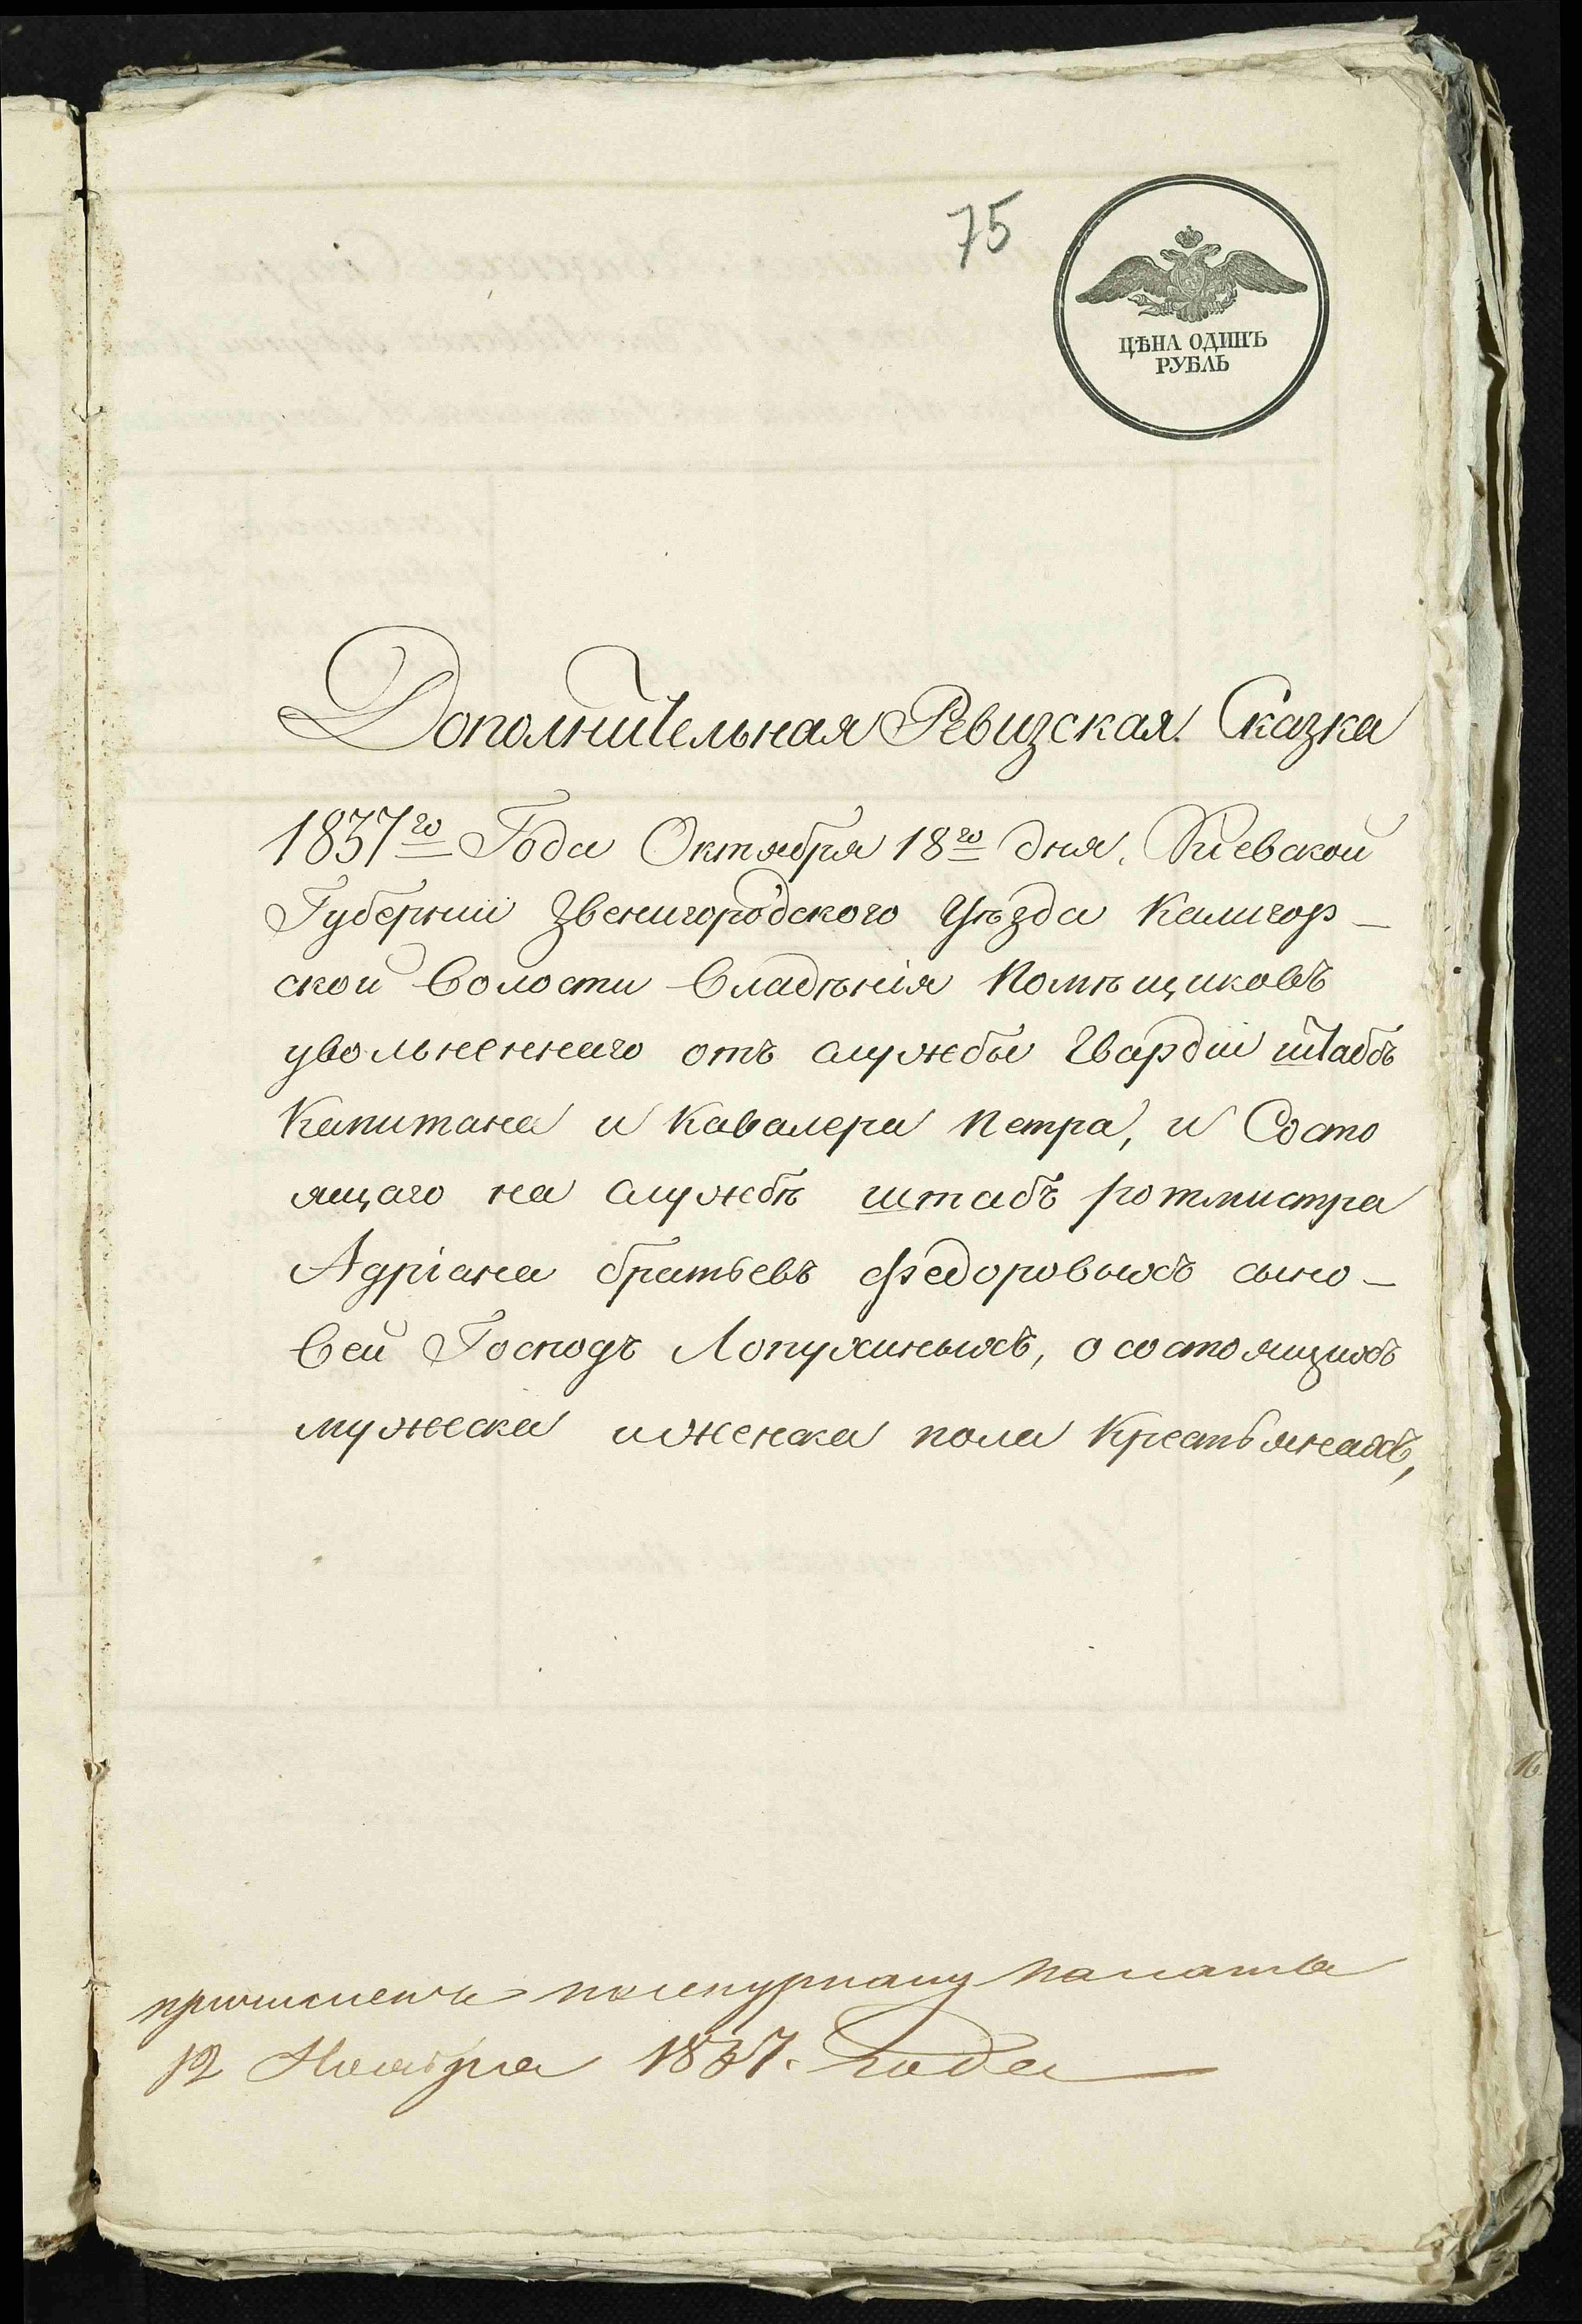 75
ЦѢНА ОДИНЪ
РУБЛЬ
Дополнительная Ревизская Сказка
1837го Года Октября 18го дня. Киевской
Губернии Звенигородского Уѣзда Калигор-
ской Волости Владѣнія Помѣщиковъ
уволненнаго отъ службы Гвардіи штабъ
Капитана и Кавалера Петра, и Состо
ящаго на службѣ штабъ ротмистра
Адріана братьевъ Федоровыхъ сыно-
вей Господъ Лопухиныхъ, о состоящихъ
мужеска и женска пола крестьянахъ,
палаты
12 Ноября 1837. года
16